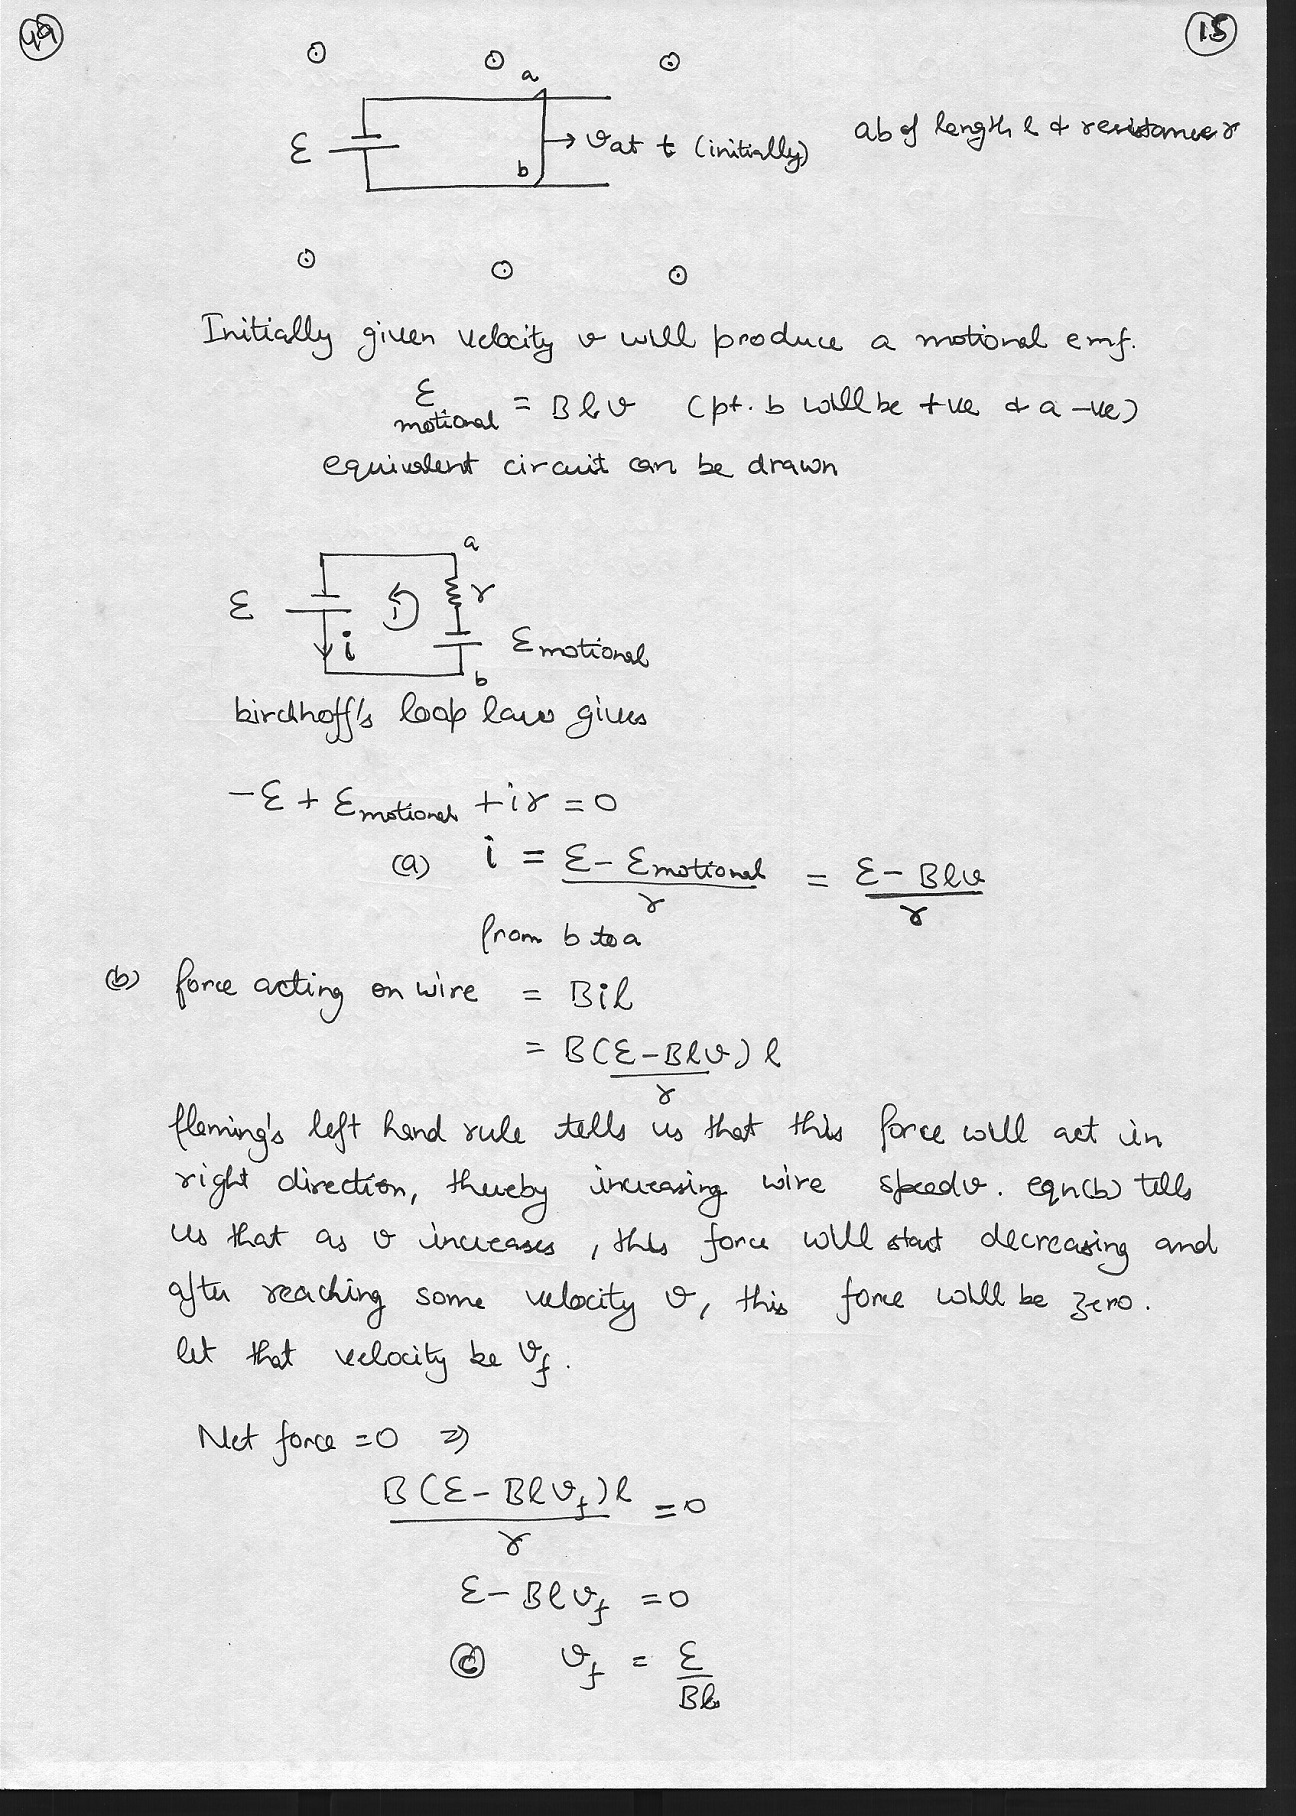 49
15
a
ε
b
v at t (initially)
ab of length l & resistance r
Initially given velocity v will produce a motional emf.
ε motional = Blv (pt. b will be +ve & a -ve)
equivalent circuit can be drawn
a
ε
r
i
ε motional
b
kirchhoff's loop law gives
-ε + ε motional + ir = 0
(a) i = (ε - ε motional)/r = (ε - Blv)/r
from b to a
(b) force acting on wire = Bil
= B(ε - Blv)l / r
fleming's left hand rule tells us that this force will act in
right direction, thereby increasing wire speed v. eqn(b) tells
us that as v increases, this force will start decreasing and
after reaching some velocity v, this force will be zero.
let that velocity be vf.
Net force = 0 ⇒
B(ε - Blvf)l / r = 0
ε - Blvf = 0
(c) vf = ε/Bl